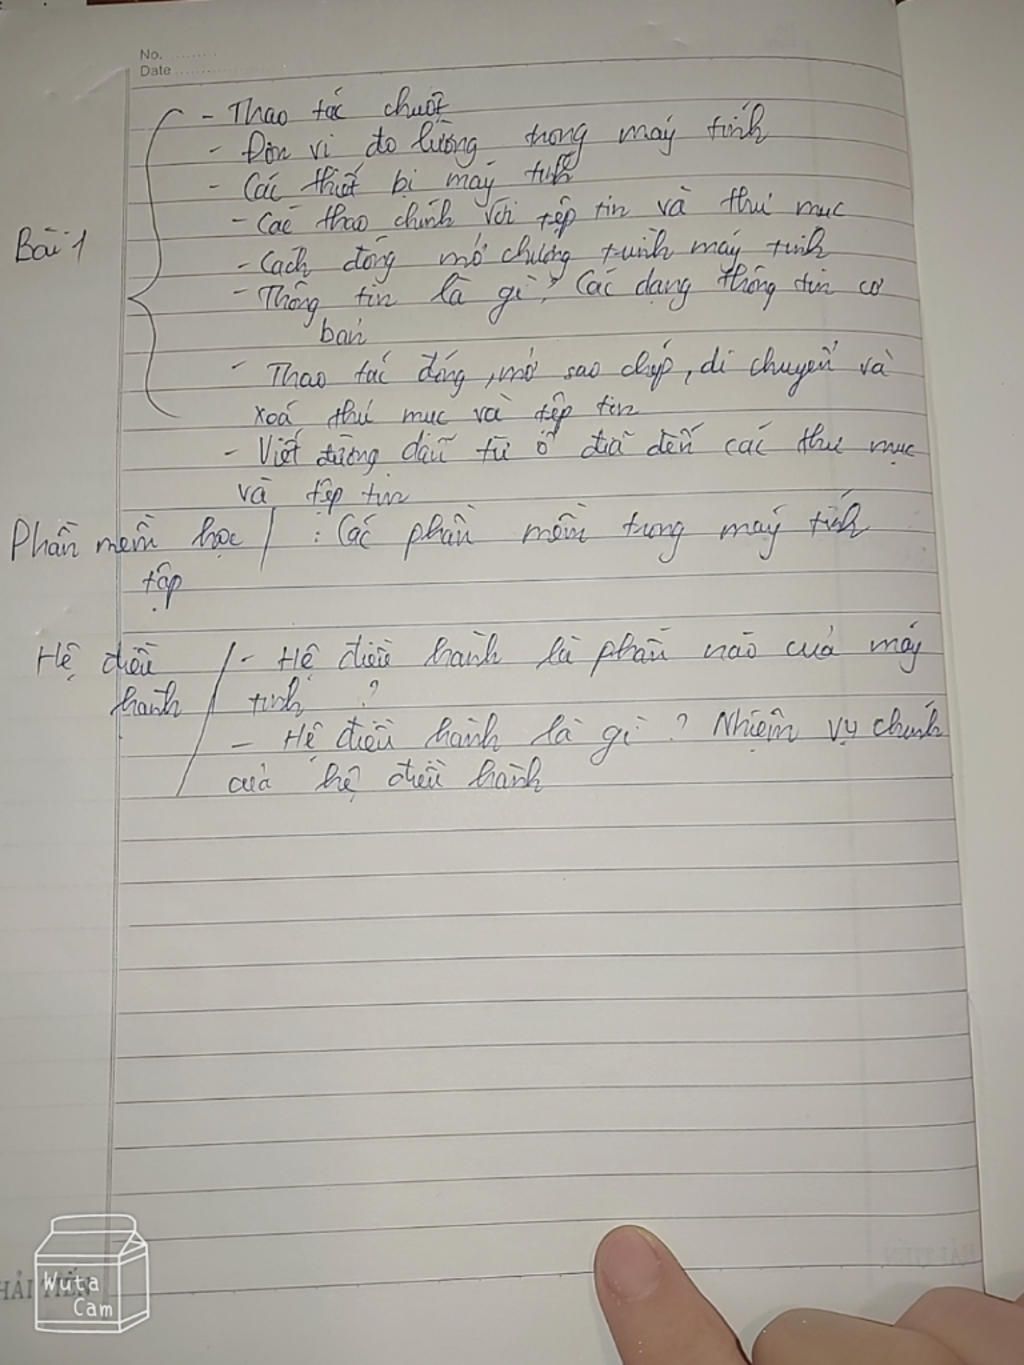 No.
Date
- Thao tác chuột
- Đơn vị đo lường trong máy tính
- Các thiết bị máy tính
- Các thao chính với tệp tin và thư mục
Bài 1
- Cách đóng mở chương trình máy tính
- Thông tin là gì? Các dạng thông tin cơ
bản
- Thao tác đóng, mở sao chép, di chuyển và
xoá thư mục và tệp tin
- Viết đường dẫn từ ổ đĩa đến các thư mục
và tệp tin
Phần mềm học : Các phần mềm trong máy tính
tập
Hệ điều - Hệ điều hành là phần nào của máy
hành tính ?
- Hệ điều hành là gì ? Nhiệm vụ chính
của hệ điều hành
HẢI TIẾN
Wuta
Cam